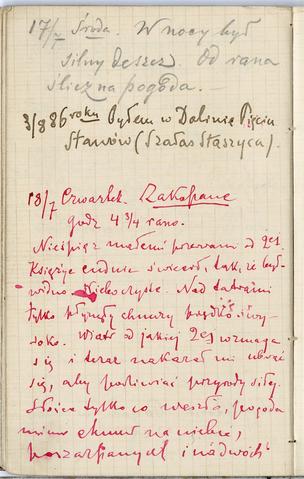 17/7 Środa. W nocy był
silny deszcz. Od rana
śliczna pogoda.
3/8 86 roku Byłem w Dolinie Pięciu
Stawów (Szałas Staszyca).
18/7 Czwartek. Zakopane
godz 4 3/4 rano.
Nie śpię z małemi przerwami od 2ej.
Księżyc cudnie świecił, tak, że było
widno. Niebo czyste. Nad Tatrami
tylko płynęły chmury prędko i wy-
soko. Wiatr od jakiej 2ej wzmaga
się i teraz nakazał mi ubrać
się, aby podziwiać przyrody siłę.
Słońce tylko co weszło, pogoda
mimo chmur na niebie,
poszarpanych i nad